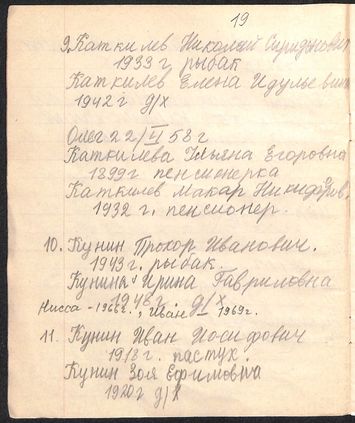 19
9. Каткилев Николай Спиридонович
1933 г рыбак
Каткилев Елена Идулье
1942 г д/х
Олег 22/VI 58 г
Каткилева Ульяна Егоровна
1899 г пенсионерка
Каткилев Макар Никифоров.
1932 г. пенсионер.
10. Кунин Прохор Иванович.
1943 г. рыбак.
Кунина Ирина Гавриловна
1948 г. д/х
Нисса - 1966 г., Иван - 1969 г.
11. Кунин Иван Иосифович
1918 г. пастух.
Кунин Зоя Ефимовна
1920 г д/х